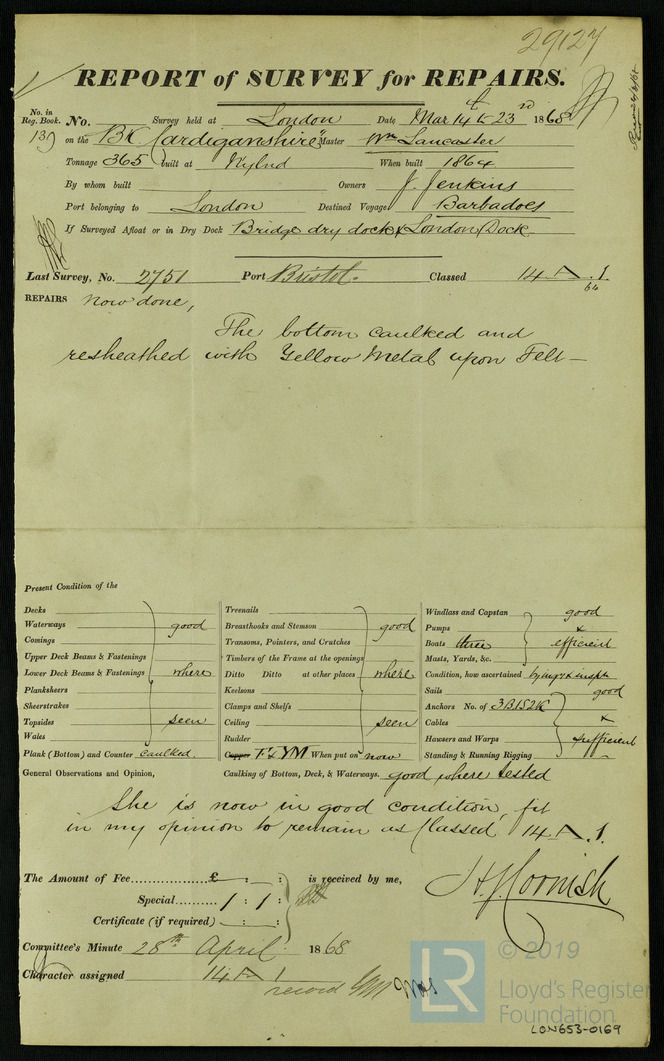 29127
REPORT of SURVEY for REPAIRS.
No. in Reg. Book. No. Survey held at London Date Mar 14th & 23rd 1868
139 on the Bk "Cardiganshire" Master Wm Lancaster
Tonnage 365 built at When built 1864
By whom built Owners J. Jenkins
Port belonging to London Destined Voyage Barbadoes
If Surveyed Afloat or in Dry Dock Bridge dry dock & London Dock
Last Survey, No. 2751 Port Bristol. Classed 14 A .1.
64
REPAIRS now done,
The bottom caulked and
resheathed with Yellow Metal upon Felt —
Present Condition of the
Decks
Waterways good
Comings
Upper Deck Beams & Fastenings
Lower Deck Beams & Fastenings where
Planksheers
Sheerstrakes
Topsides seen
Wales
Plank (Bottom) and Counter caulked.
Treenails
Breasthooks and Stemson good
Transoms, Pointers, and Crutches
Timbers of the Frame at the openings
Ditto Ditto at other places where
Keelsons
Clamps and Shelfs
Ceiling seen
Rudder
Copper F & YM When put on now
Windlass and Capstan good
Pumps &
Boats three efficient
Masts, Yards, &c.
Condition, how ascertained by inqy & inspn
Sails good
Anchors No. of 3B1S2K
Cables &
Hawsers and Warps sufficient
Standing & Running Rigging
General Observations and Opinion, Caulking of Bottom, Deck, & Waterways. good where tested
She is now in good condition, fit
in my opinion to remain as Classed, 14 A .1.
The Amount of Fee £ - : - : is received by me,
Special 1 : 1 :
Certificate (if required) - : - :
H J Cornish
Committee's Minute 28th April 1868
Character assigned 14 A 1
record
LR © 2019
Lloyd's Register
Foundation
LON653-0169